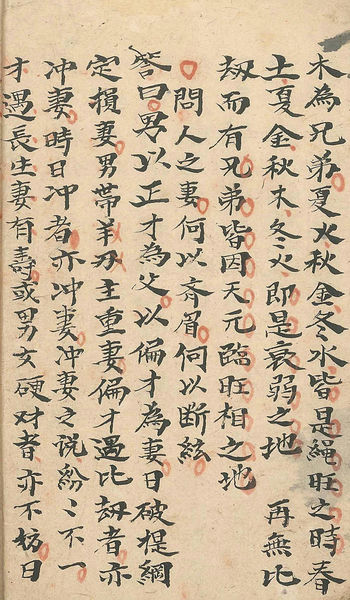 木為兄弟夏火秋金冬水皆是䋲旺之時春
土夏金秋木冬火即是衰弱之地　再無比
刼而有兄弟皆因天元臨旺相之地
○問人之妻何以齊眉何以断絃
答曰男以正才為父以偏才為妻日破提綱
定損妻男帶羊刃主重妻偏才遇比刼者亦
冲妻時日冲者亦冲妻冲妻之说紛〻不一
才遇長生妻有壽或男女硬对者亦不妨日